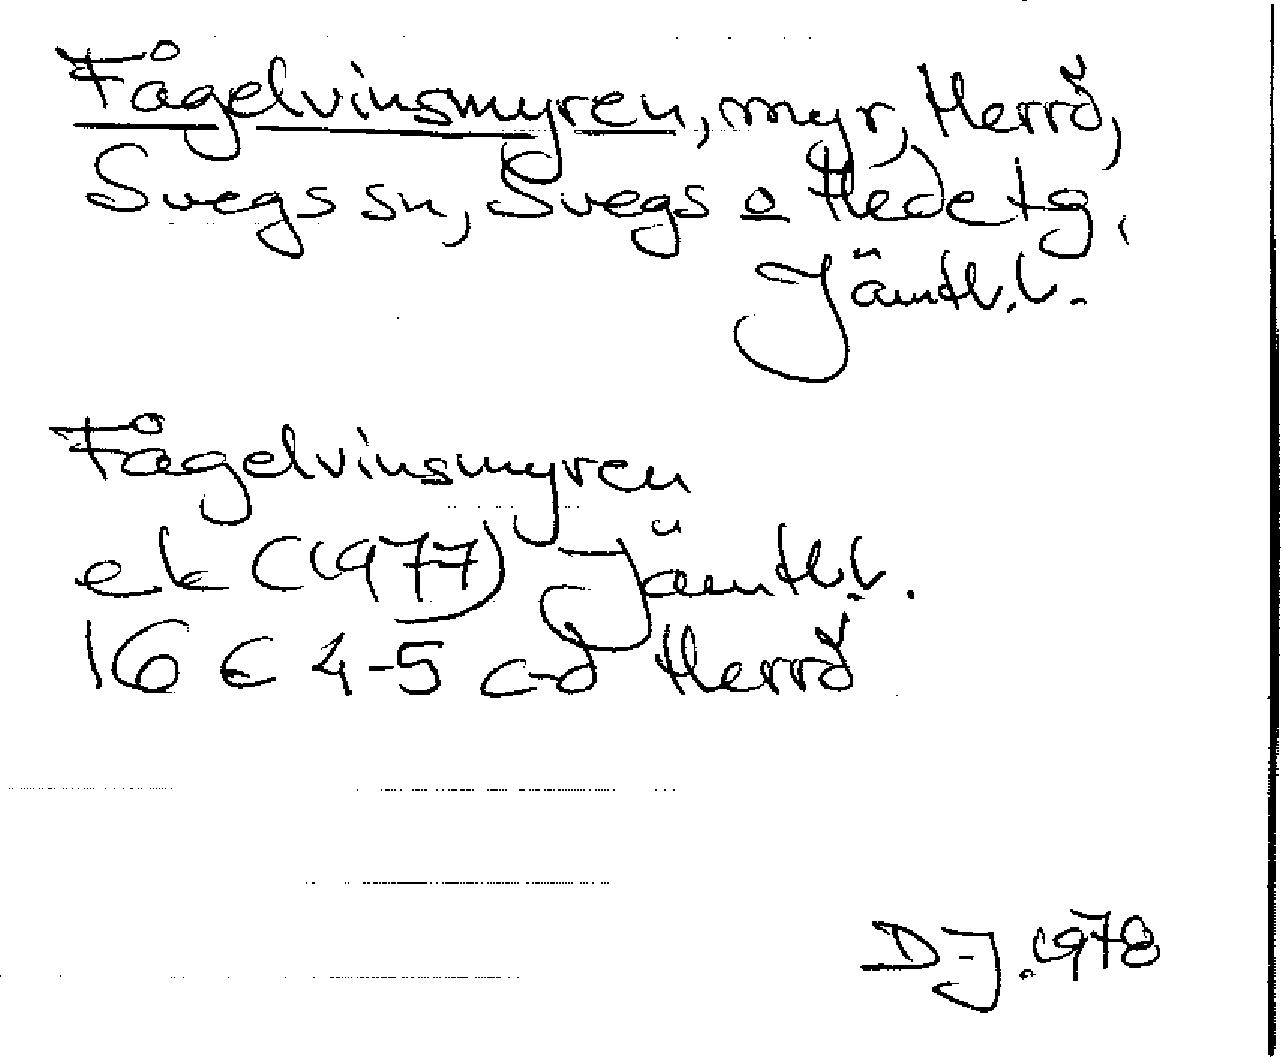 Fågelvinsmyren, myr, Herrö,
Svegs sn, Svegs o Hede tg,
Jämtl.l.
Fågelvinsmyren
ek (1977) Jämtl.l.
16 E 4-5 c-d Herrö
DJ. 1978